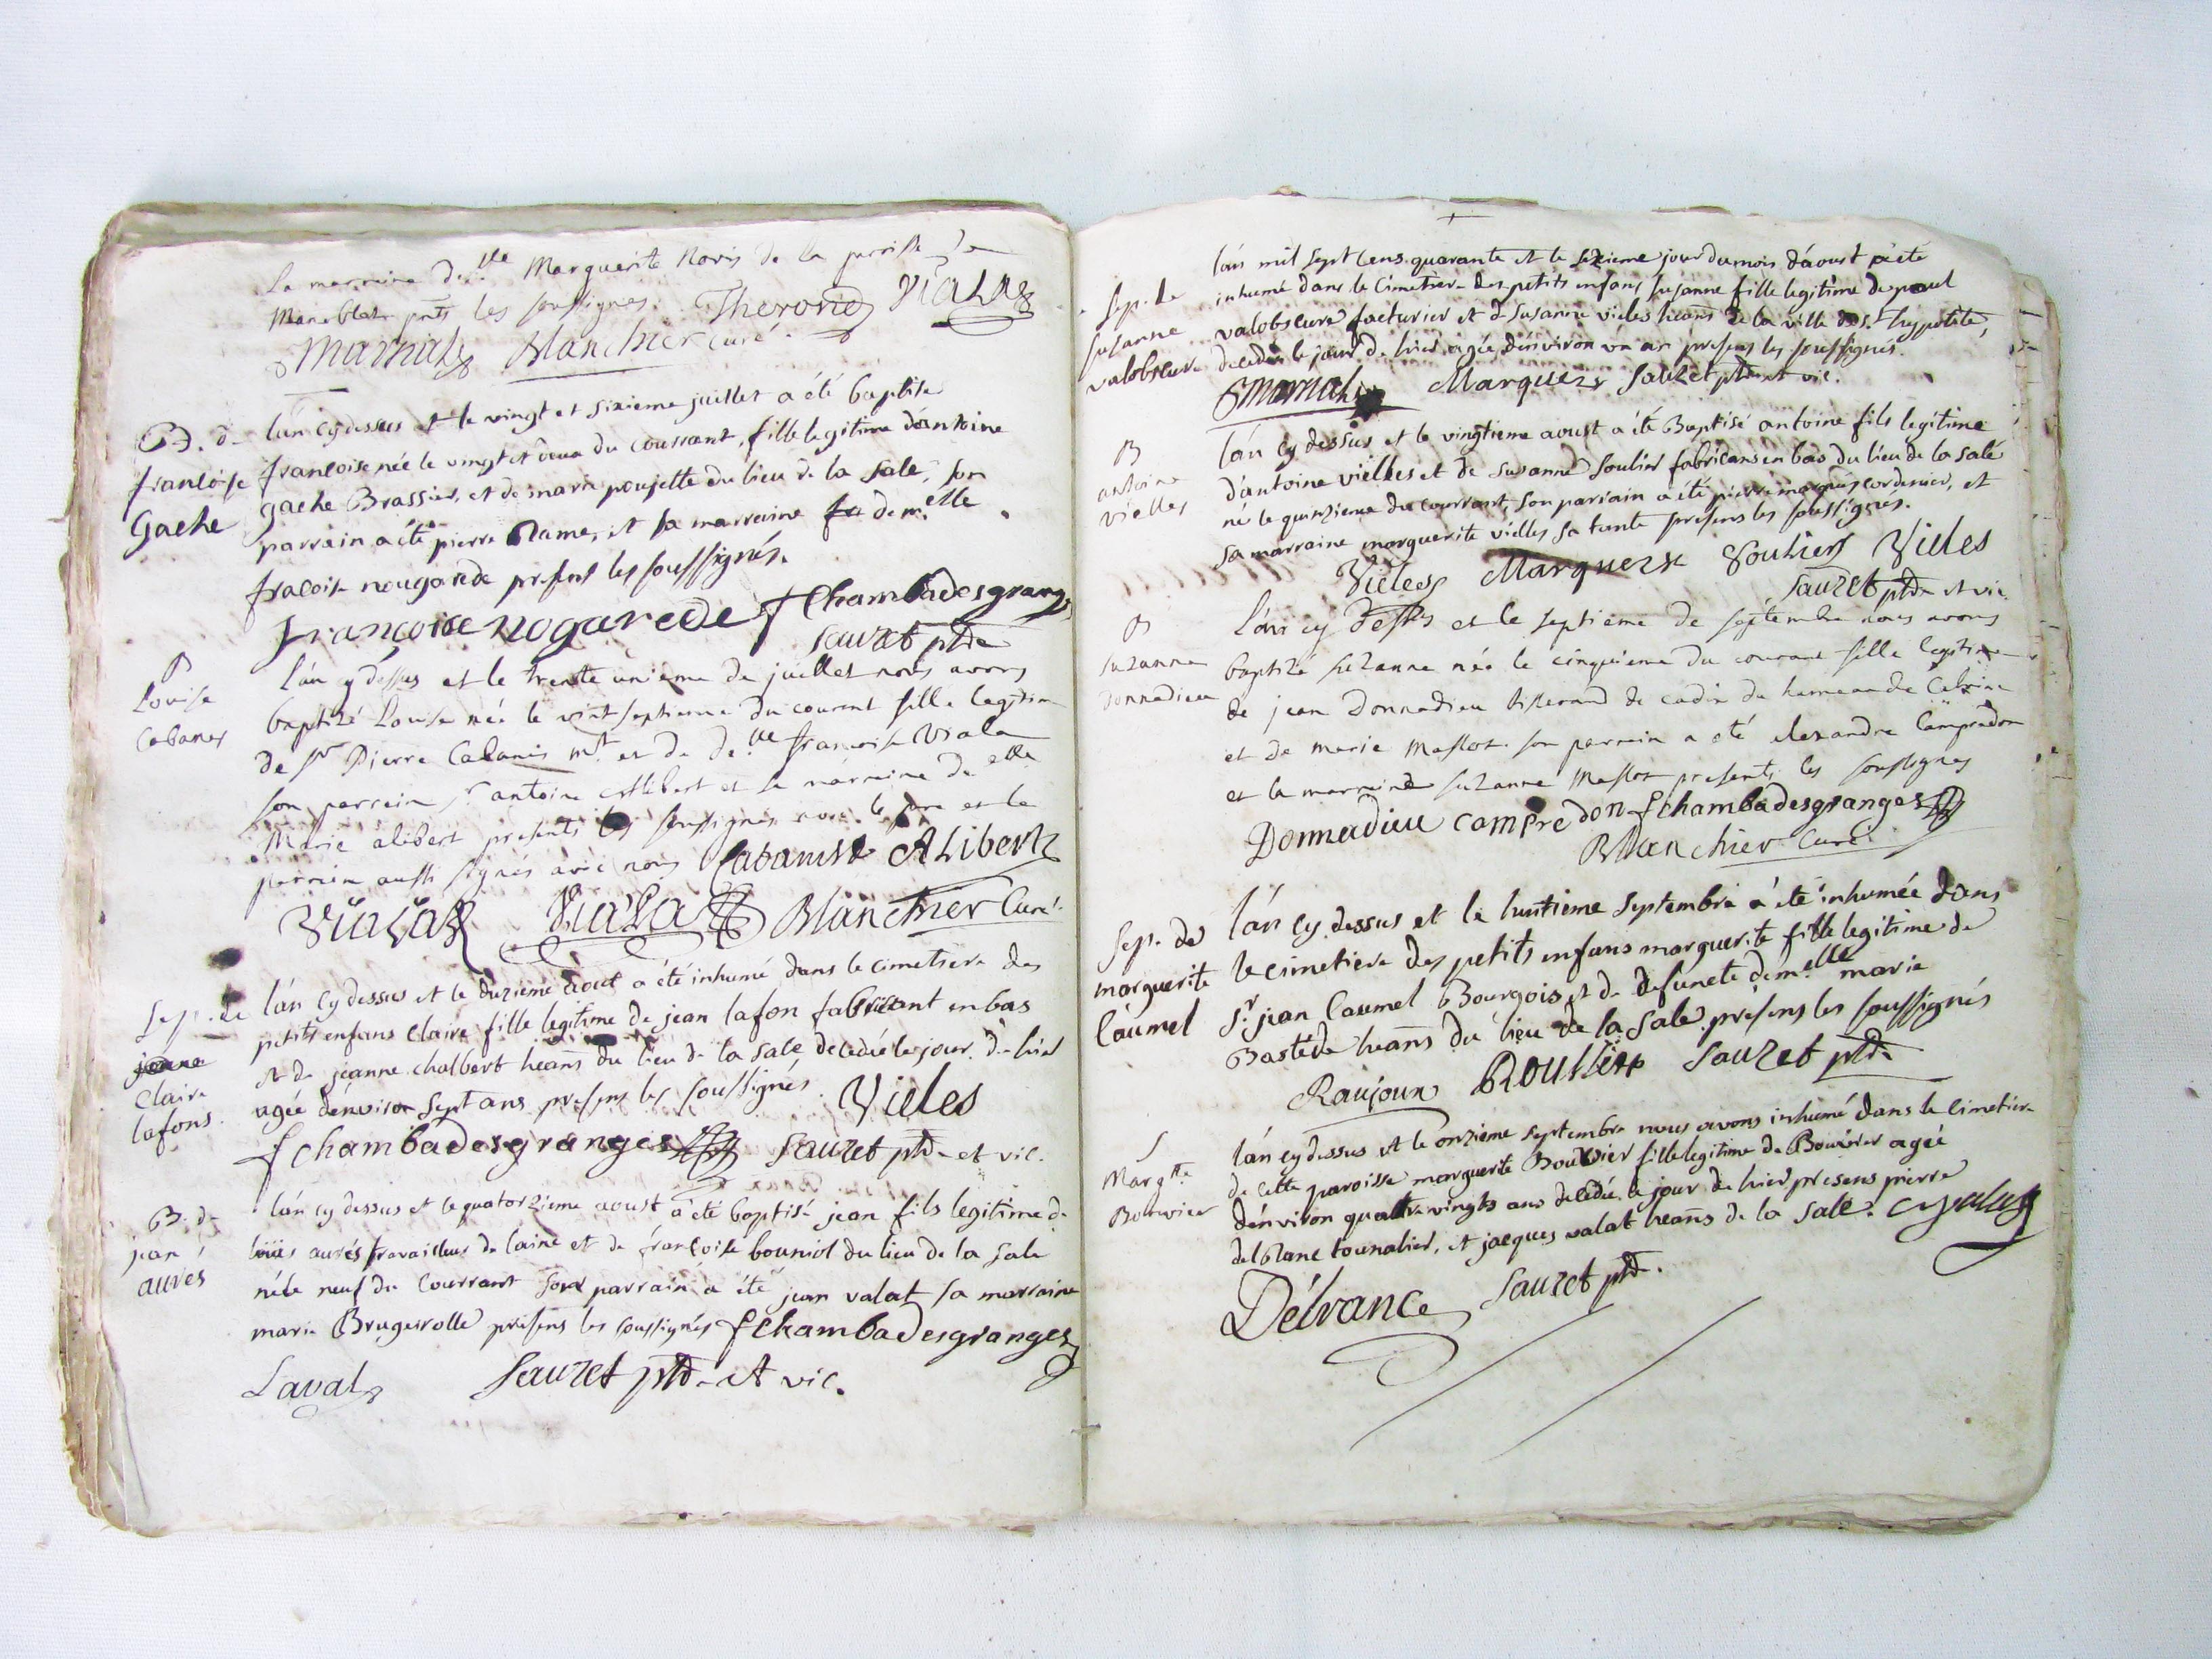 La marraine d.lle Marguerite Novis de la parroisse de
Maneblas pnts les soussignes. Therond Viala
Marnal Blanchier curé.
B. de
francoise
Gache
lán cy dessus et le vingt et sixieme juillet a été baptisée
francoise née le vingt et deux du courrant, fille legitime dántoine
gache Brassier, et de marie poujette du lieu de la sale, son
parrain a été pierre Rame, et sa marraine demlle
fracoise nougarede presens les soussignés.
françoise nogarede f Chambadesgranges
sauzet ptre
B
Louise
Cabanes
Lán cy dessus et le trente unieme de juillet nous avons
baptizé Louise née le vint septieme du courent fille legitime
de Sr Pierre Cabanis mt. et de de.lle francoise Viala
son parrein sr antoine Alibert et sa marraine de elle
Marie alibert presents les soussignes avec le pere et le
parrein aussi signés avec nous Cabanis Alibert
Viala Viala Blanchier Curé.
Sep. de
Claire
lafons.
lán cy dessus et le duzieme aout a été inhumé dans le cimetiere des
petits enfans Claire fille legitime de jean lafon fabricant en bas
et de jeanne chalbert heans du lieu de la sale decedée le jour de hier
agée dénviron sept ans presens les soussignés. Vieles
f chambadesgranges sauzet ptre et vic.
B. de
jean
aurés
lán cy dessus et le quatorzieme aoust a été baptisé jean fils legitime de
louis aurés travailleur de laine et de françoise bouniol du lieu de la sale
né le neuf du courrant son parrain a été jean valat sa marraine
marie Brugeirolle presens les soussignés f chambadesgranges
Laval Sauzet ptre et vic.
Sep. de
susanne
valobscure
lán mil sept cens quarante et le sezieme jour du mois dáoust a été
inhumé dans le cimetiere des petits enfans susanne fille legitime de paul
valobscure facturier et de susanne vieles heans de la ville de st hypolite,
decedée le jour de hier agée dénviron un an presens les soussignés.
Marnal Marques Sauzet ptre et vic.
B
antoine
vielles
lán cy dessus et le vingtieme aoust a été Baptisé antoine fils legitime
dántoine vielles et de susanne soulier fabricans en bas du lieu de la sale
né le quinzieme du courrant, son parrain a été pierre marques cordonier, et
sa marraine marguerite vielles sa tante presens les soussignés.
Vieles Marques Soulier Vieles
Sauzet ptre et vic.
B
suzanne
Donnadieu
Lán cy dessus et le septieme de septembre nous avons
baptizé suzanne née le cinquieme du courant fille legitime
de jean Donnadieu tisserand de cadis du hameau de
et de marie Massot. son parrein a été alexandre Campredon
et la marraine suzanne Massot presents les soussignes
Donnadieu campredon f chambadesgranges
Blanchier Curé.
Sep. de
marguerite
Caumel
lán cy dessus et le huitieme septembre a été inhumée dans
le cimetiere des petits enfans marguerite fille legitime de
Sr. jean Caumel Bourgois et de defuncte demlle marie
Bastide heans du lieu de la sale. presens les soussignés
Raujoux Roussier Sauzet ptre
S
Margte
Bouvier
lán cy dessus et le onzieme septembre nous avons inhumé dans le cimetiere
de cette paroisse marguerite Bouvier fille legitime de Bouvier agée
dénviron quattre vingts ans decedée le jour de hier presens pierre
delranc tounelier, et jacques valat heans de la sale.
Délranc Sauzet ptre.